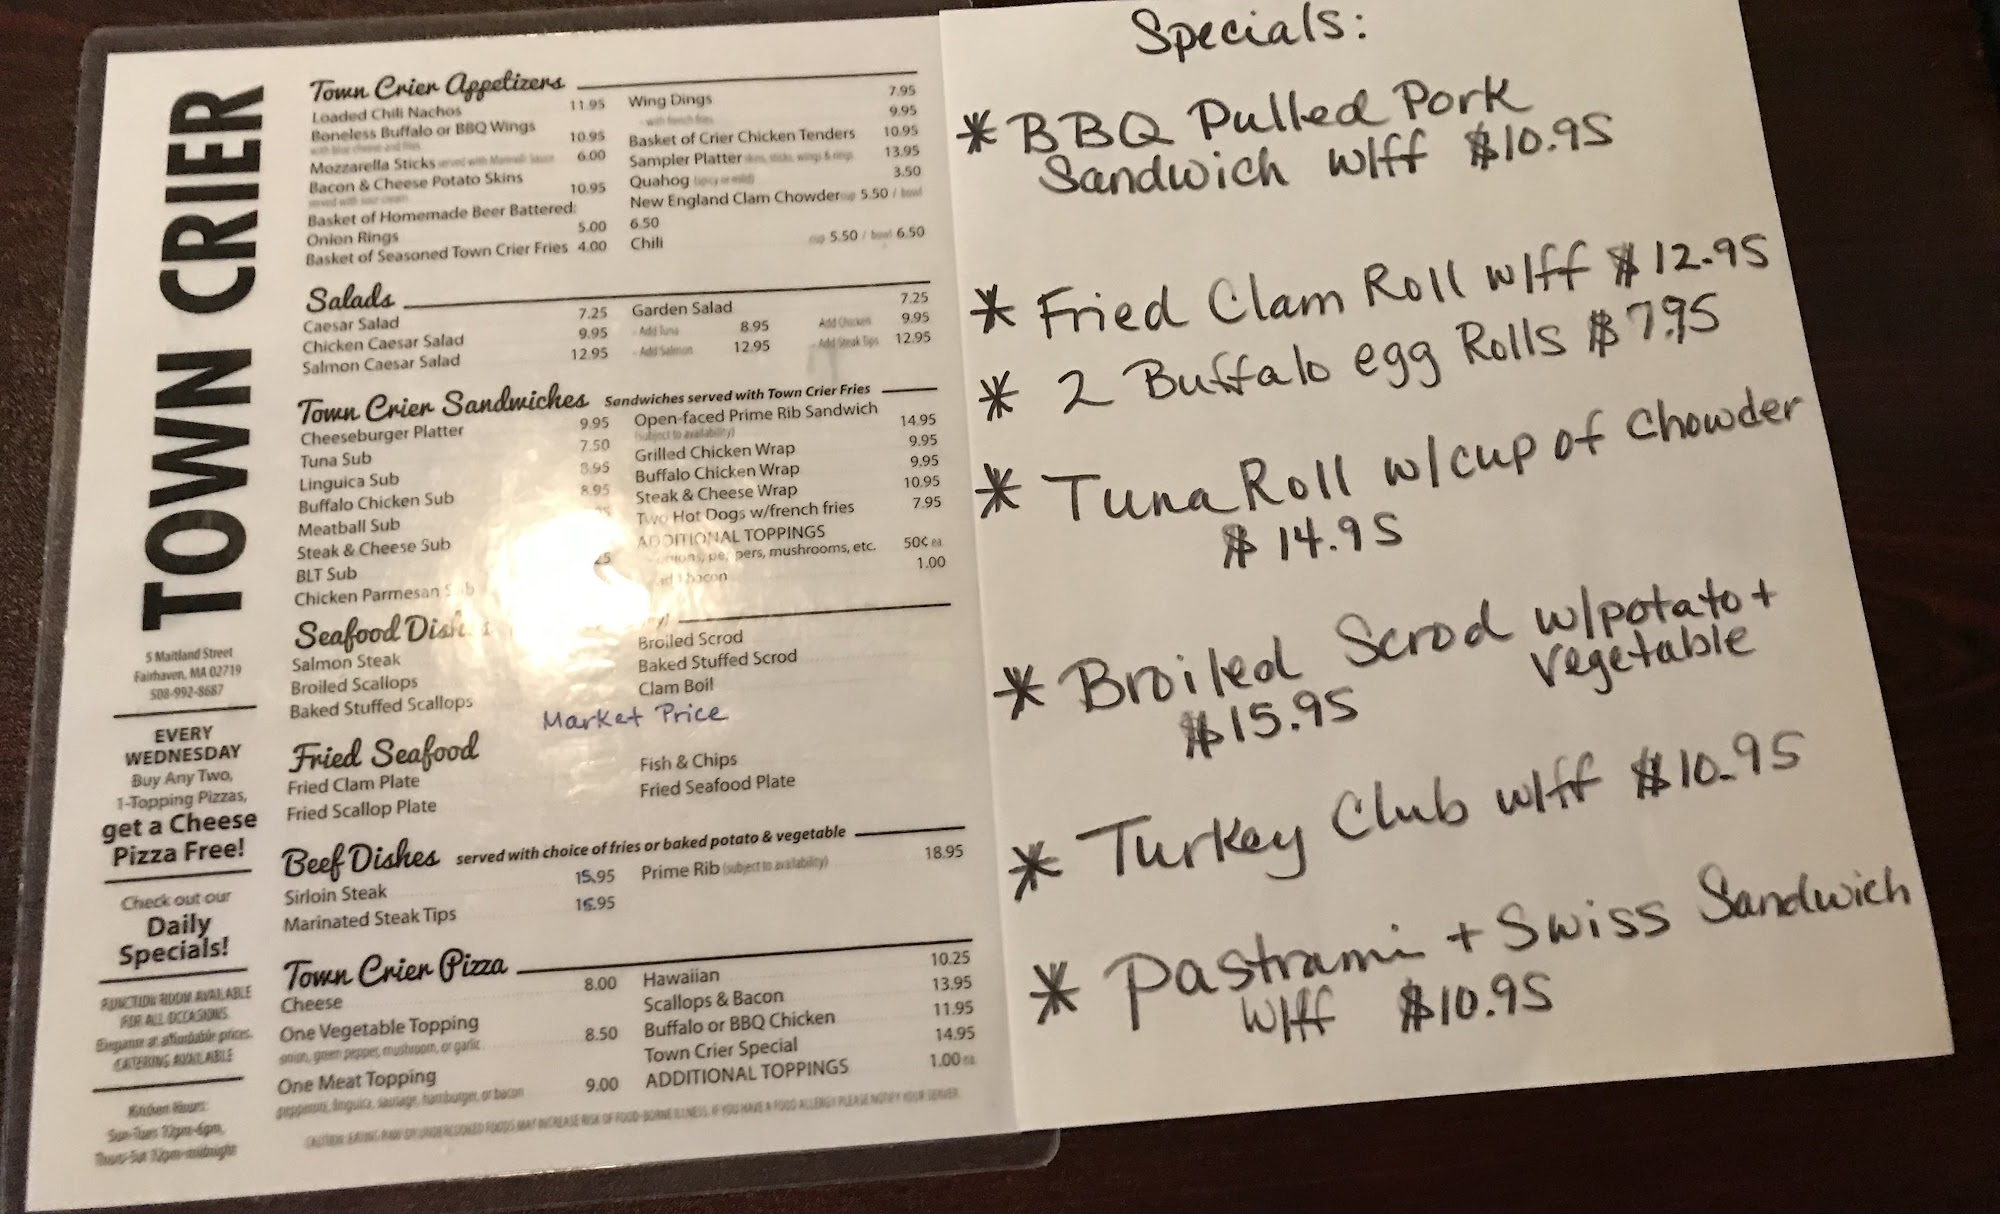 TOWN CRIER
5 Maitland Street
Fairhaven, MA 02719
508-992-8687
EVERY
WEDNESDAY
Buy Any Two,
1-Topping Pizzas,
get a Cheese
Pizza Free!
Check out our
Daily
Specials!
FUNCTION ROOM AVAILABLE
FOR ALL OCCASIONS
Elegance at affordable prices.
CATERING AVAILABLE
Kitchen Hours:
Sun-Tues 12pm-6pm,
Thurs-Sat 12pm-midnight
Town Crier Appetizers
Loaded Chili Nachos 11.95
Boneless Buffalo or BBQ Wings 10.95
with blue cheese and fries
Mozzarella Sticks served with Marinara Sauce 6.00
Bacon & Cheese Potato Skins 10.95
served with sour cream
Basket of Homemade Beer Battered:
Onion Rings 5.00
Basket of Seasoned Town Crier Fries 4.00
Wing Dings 7.95
- with french fries 9.95
Basket of Crier Chicken Tenders 10.95
Sampler Platter skins, sticks, wings & rings 13.95
Quahog (spicy or mild) 3.50
New England Clam Chowder cup 5.50 / bowl
6.50
Chili cup 5.50 / bowl 6.50
Salads
Caesar Salad 7.25
Chicken Caesar Salad 9.95
Salmon Caesar Salad 12.95
Garden Salad 7.25
- Add Tuna 8.95 Add Chicken 9.95
- Add Salmon 12.95 - Add Steak Tips 12.95
Town Crier Sandwiches Sandwiches served with Town Crier Fries
Cheeseburger Platter 9.95
Tuna Sub 7.50
Linguica Sub 8.95
Buffalo Chicken Sub 8.95
Meatball Sub
Steak & Cheese Sub
BLT Sub
Chicken Parmesan
Open-faced Prime Rib Sandwich 14.95
(subject to availability)
Grilled Chicken Wrap 9.95
Buffalo Chicken Wrap 9.95
Steak & Cheese Wrap 10.95
Two Hot Dogs w/french fries 7.95
ADDITIONAL TOPPINGS
peppers, mushrooms, etc. 50¢ ea.
bacon 1.00
Seafood Dishes
Salmon Steak
Broiled Scallops
Baked Stuffed Scallops
Broiled Scrod
Baked Stuffed Scrod
Clam Boil
Market Price
Fried Seafood
Fried Clam Plate
Fried Scallop Plate
Fish & Chips
Fried Seafood Plate
Beef Dishes served with choice of fries or baked potato & vegetable
Sirloin Steak 15.95
Marinated Steak Tips 15.95
Prime Rib (subject to availability) 18.95
Town Crier Pizza
Cheese 8.00
One Vegetable Topping 8.50
onion, green pepper, mushroom, or garlic
One Meat Topping 9.00
pepperoni, linguica, sausage, hamburger, or bacon
Hawaiian 10.25
Scallops & Bacon 13.95
Buffalo or BBQ Chicken 11.95
Town Crier Special 14.95
ADDITIONAL TOPPINGS 1.00 ea.
CAUTION: EATING RAW OR UNDERCOOKED FOODS MAY INCREASE RISK OF FOOD-BORNE ILLNESS. IF YOU HAVE A FOOD ALLERGY PLEASE NOTIFY YOUR SERVER.
Specials:
* BBQ Pulled Pork
Sandwich w/ff $10.95
* Fried Clam Roll w/ff $12.95
* 2 Buffalo egg Rolls $7.95
* Tuna Roll w/cup of chowder
$14.95
* Broiled Scrod w/potato +
vegetable
$15.95
* Turkey Club w/ff $10.95
* Pastrami + Swiss Sandwich
w/ff $10.95